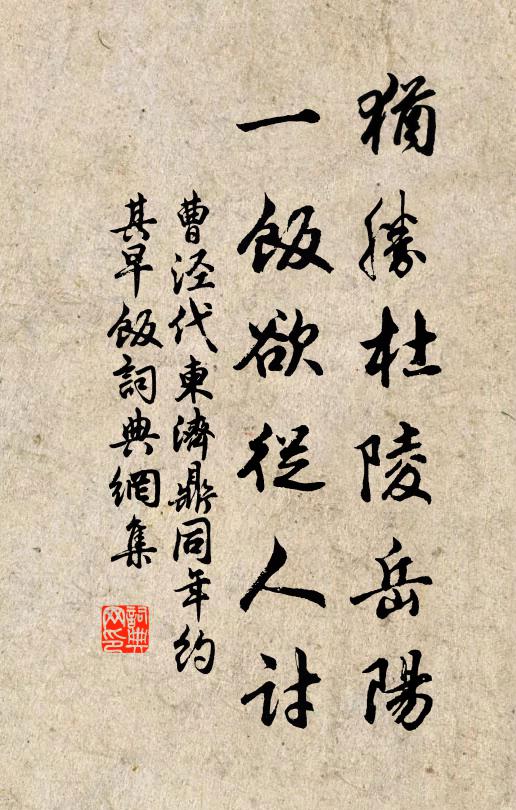 猶勝杜陵岳陽
一飯欲從人討
曹涇代東濟鼎同年約
其早飯詞典網集
詞典网印